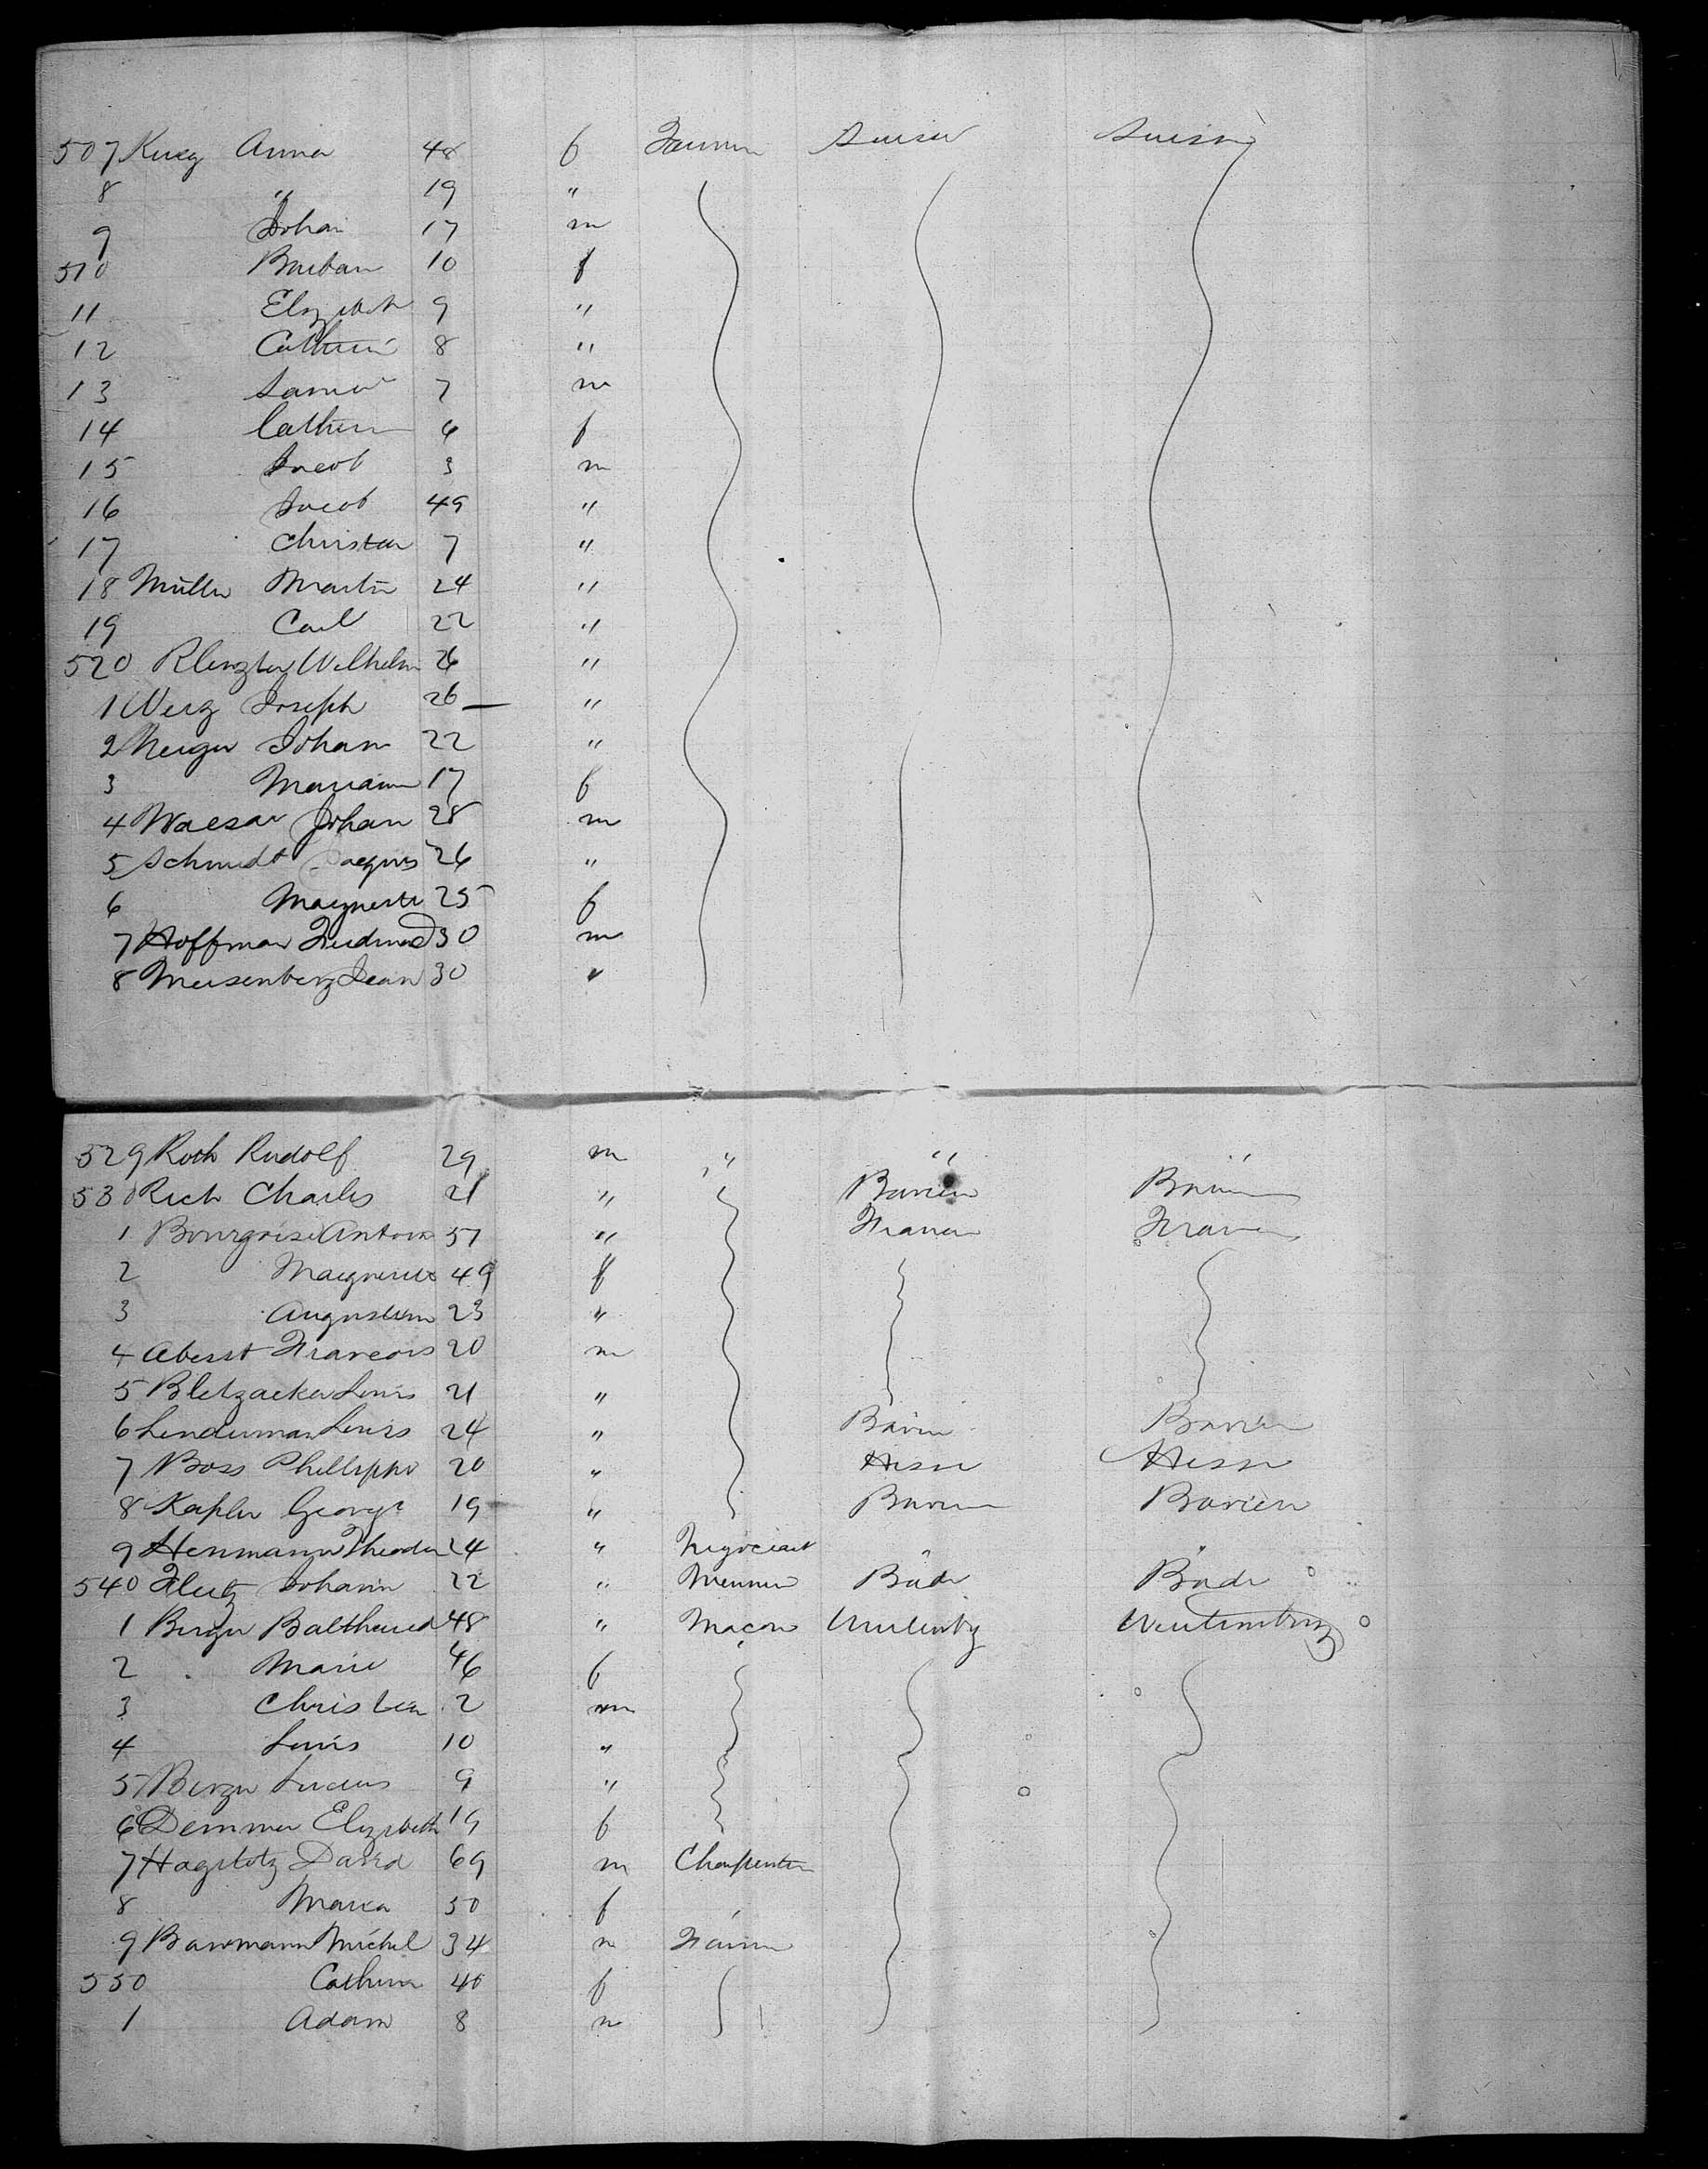 507 Kueg Anna 48 f Farmer Suisse Suisse
8 " 19 "
9 Johan 17 m
510 Barbara 10 f
11 Elizabeth 9 "
12 Catherin 8 "
13 7 m
14 Catherin 6 f
15 Jacob 3 m
16 Jacob 49 "
17 Christian 7 "
18 Müller Martin 24 "
19 Carl 22 "
520 Wilhelm 26 "
1 Werz Joseph 26 — "
2 Johann 22 "
3 Mariann 17 f
4 Waesar Johan 28 m
5 Schmidt Jacques 26 "
6 25 f
7 Hoffman 30 m
8 Meisenberg Jean 30 "
529 Roth Rudolf 29 m " " "
530 Rich Charles 21 " Bavien Bavien
1 Bourgois Antoin 51 " France France
2 49 f
3 Augustin 23 "
4 Aberst Francois 20 m
5 Bletzacker Louis 21 "
6 Linderman Louis 24 " Bavien Bavien
7 Boss Phillippe 20 " Hesse Hesse
8 Kapler George 19 " Bavien Bavien
9 Henmann Theodor 24 " Negociant " "
540 Fleitz Johann 22 " Bade Bade
1 Berger 48 " Macon Wurtemberg
2 Marie 46 f
3 Christian 2 m
4 Louis 10 "
5 Berger 9 "
6 Demmer Elizabeth 19 f
7 Hagstotz David 69 m Charpentier
8 Maria 50 f
9 Bawmann Michel 34 m Farmer
550 Catherin 40 f
1 Adam 8 m